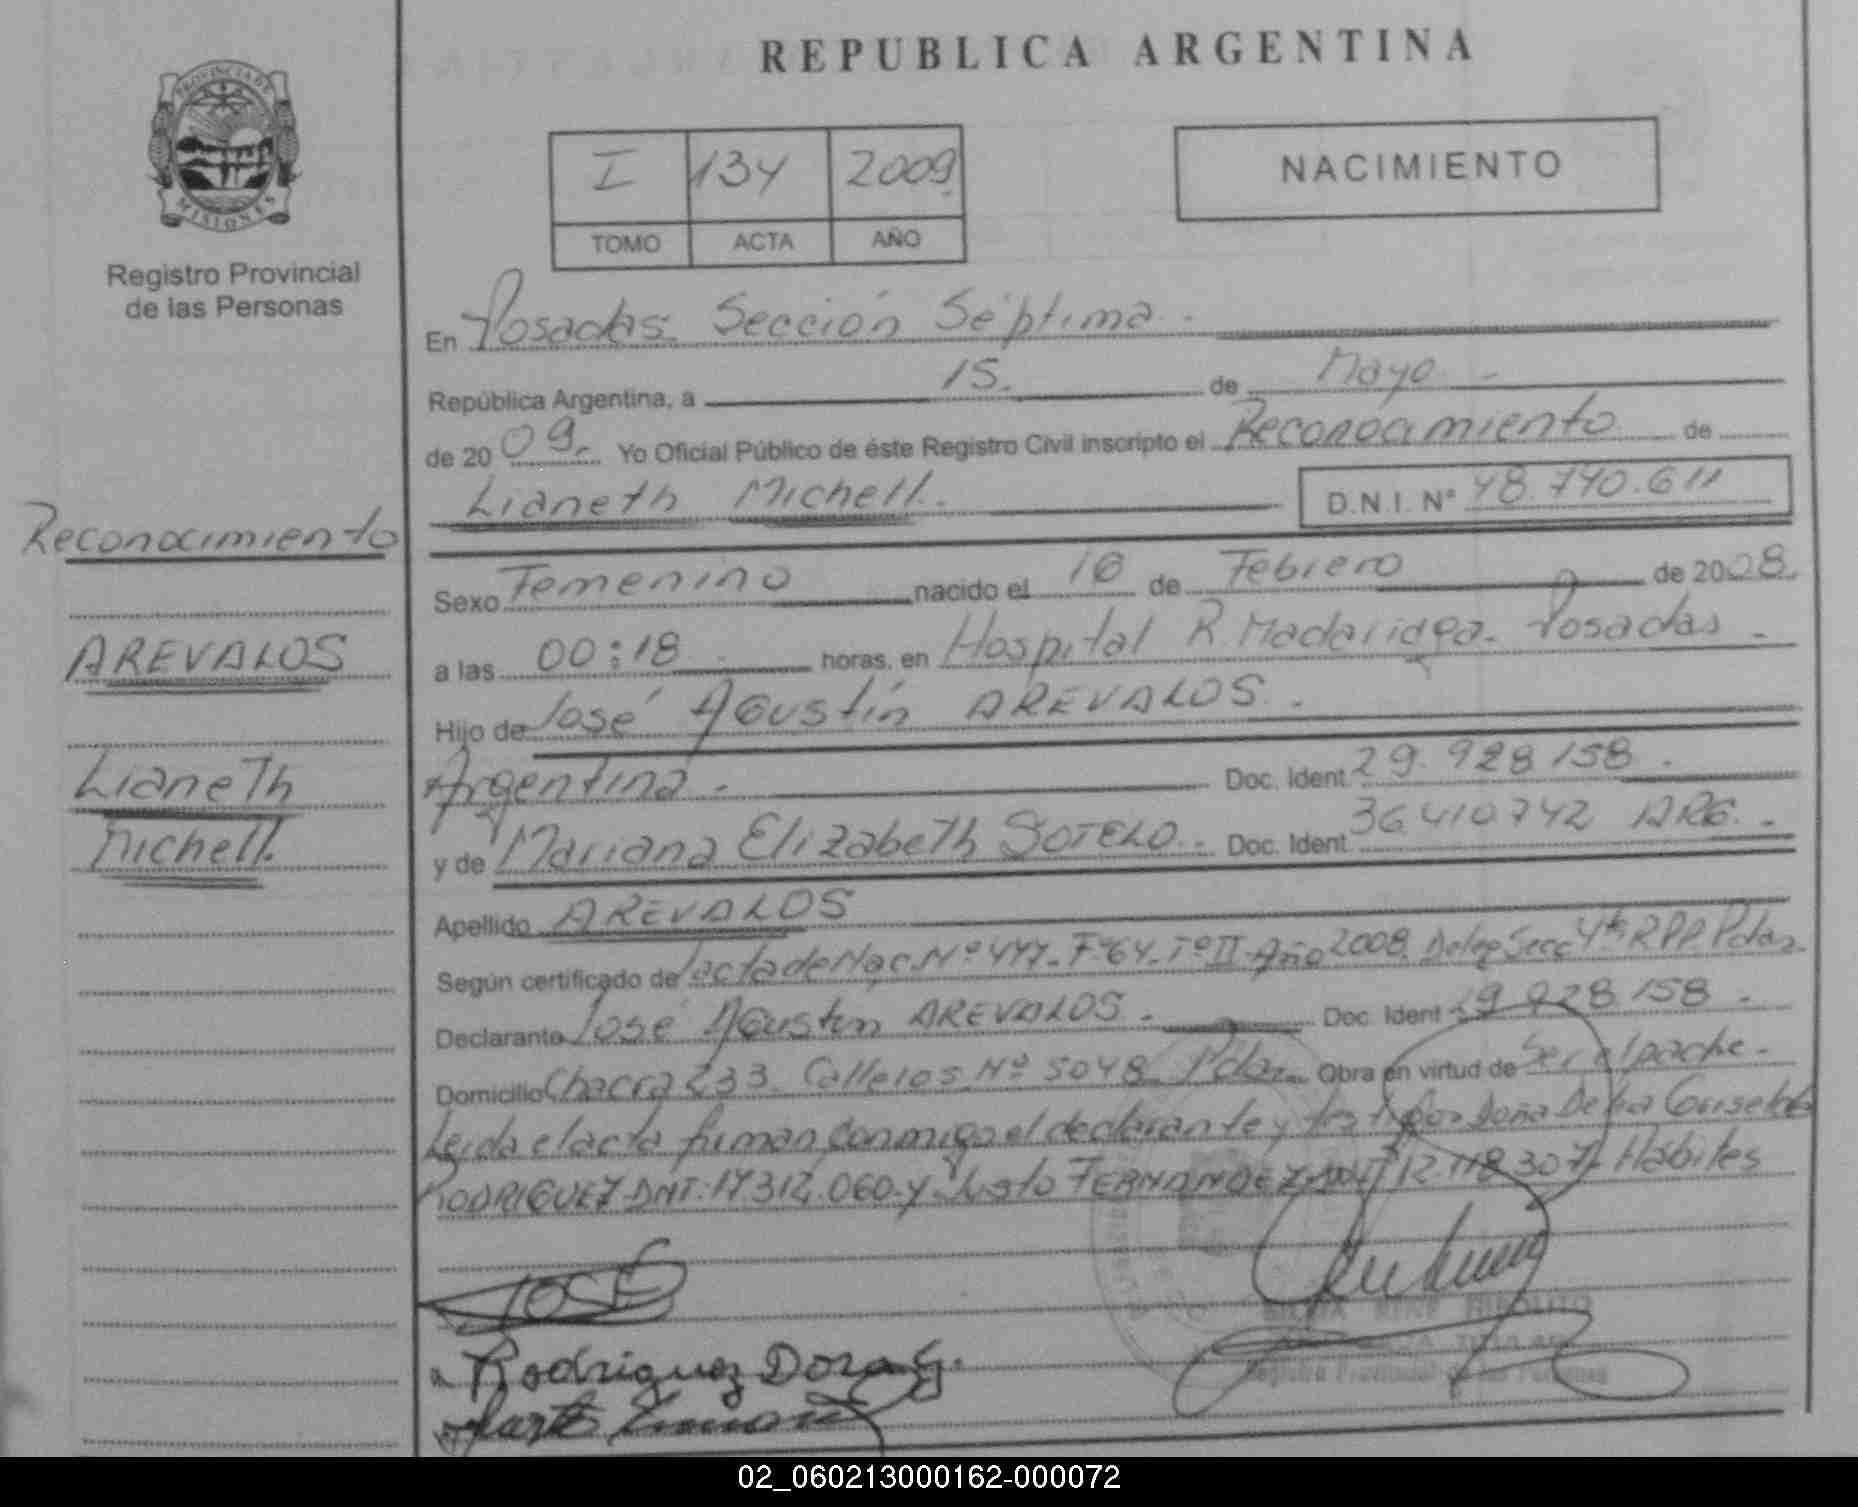 PROVINCIA DE
MISIONES
Registro Provincial
de las Personas
REPUBLICA ARGENTINA
I 134 2009
TOMO ACTA AÑO
NACIMIENTO
En Posadas Sección Séptima.
República Argentina, a 15. de Mayo
de 2009. Yo Oficial Público de éste Registro Civil inscripto el Reconocimiento de
Lianeth Michell. D.N.I. Nº 48.740.611
Reconocimiento
AREVALOS
Lianeth
Michell.
Sexo Femenino nacido el de Febrero de 2008.
a las 00:18 horas, en Hospital R. Madariaga. Posadas
Hijo de José Agustín AREVALOS.
Argentina. Doc. Ident. 29.928.158.
y de Mariana Elizabeth SOTELO. Doc. Ident. 36.410.742 ARG.
Apellido AREVALOS
Según certificado de acta de Nac. Nº 447. Fº 64. Tº II. Año 2008. Deleg Secc 4ta RPP Pdas.
Declarante José Agustin AREVALOS. Doc. Ident. 29.928.158.
Domicilio Chacra 233. Nº 5048 Pdas. Obra en virtud de Ser el padre.
Leida el acta firman conmigo el declarante y por Doña Griselda
RODRIGUEZ DNI: 17.312.060. y Justo FERNANDEZ DNI 12.118.307. Hábiles
JOSÉ
Rodriguez Dora G.
Registro Provincial de las Personas
02_060213000162-000072